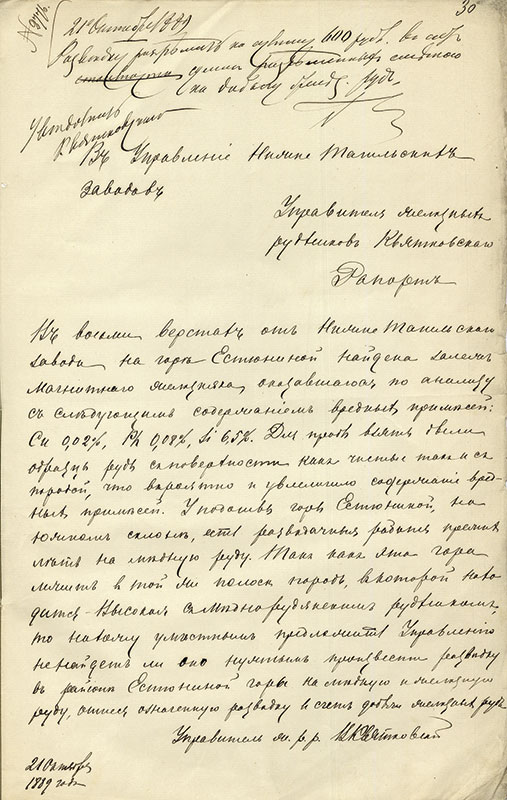 30
21 Октября 1889
Разведку разрешить на сумму 600 рублей, во
на добычу руды.
Въ Управленіе Нижне Тагильскихъ
заводовъ
Управителя железныхъ
рудниковъ Квятковскаго
Рапортъ
Въ восьми верстахъ отъ Нижне Тагильскаго
завода на горѣ Естюниной найдена залежь
магнитнаго железняка, оказавшагося по анализу
съ слѣдующимъ содержаніемъ вредныхъ примѣсей:
Cu 0,02%, Ph 0,08%, Si 6,5%. Для пробъ взяты были
образцы рудъ съ поверхности какъ чистые такъ и съ
породой, что вѣроятно и увеличило содержаніе вред-
ныхъ примѣсей. У подошвы горы Естюниной, на
склонѣ, есть разведочныя работы прежнихъ
лѣтъ на мѣдную руду. Такъ какъ эта гора
лежитъ въ той же полосѣ породъ, въ которой нахо-
дится Высокая съ Меднорудянскимъ рудникомъ,
то нахожу умѣстнымъ предложить Управленію
не найдетъ ли оно нужнымъ произвести разведку
въ районѣ Естюниной горы на мѣдную и железную
руду, отнеся означенную разведку въ счетъ добычи железныхъ рудъ
Управитель ж. р. Квятковскій
21 Октября
1889 года